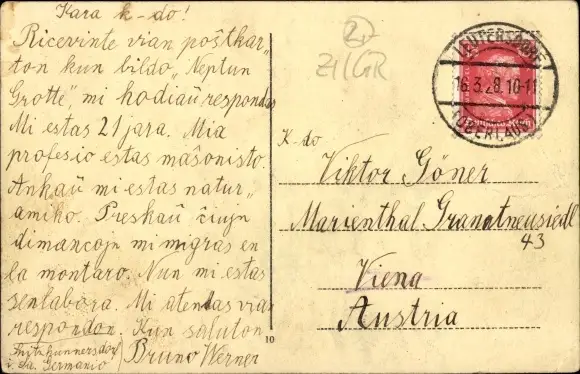 Kara k-do!
Ricevinte vian poŝtkar„
ton kun bildo „Neptun
Grotte", mi hodiaŭ respondas
Mi estas 21 jara. Mia
profesio estas maŝonisto.
Ankaŭ mi estas natur„
amiko. Preskaŭ ĉiujn
dimancojn mi migras en
la montaro. Nun mi estas
senlabora. Mi atendas vian
respondon. Kun saluton
Bruno Werner
i. Sa. Germanio
10
2
LEUTERSDORF
16.3.28.10-11
(OBERLAUS.)
K-do
Viktor Göner
Marienthal-Gramatneusiedl
43
Viena
Austria